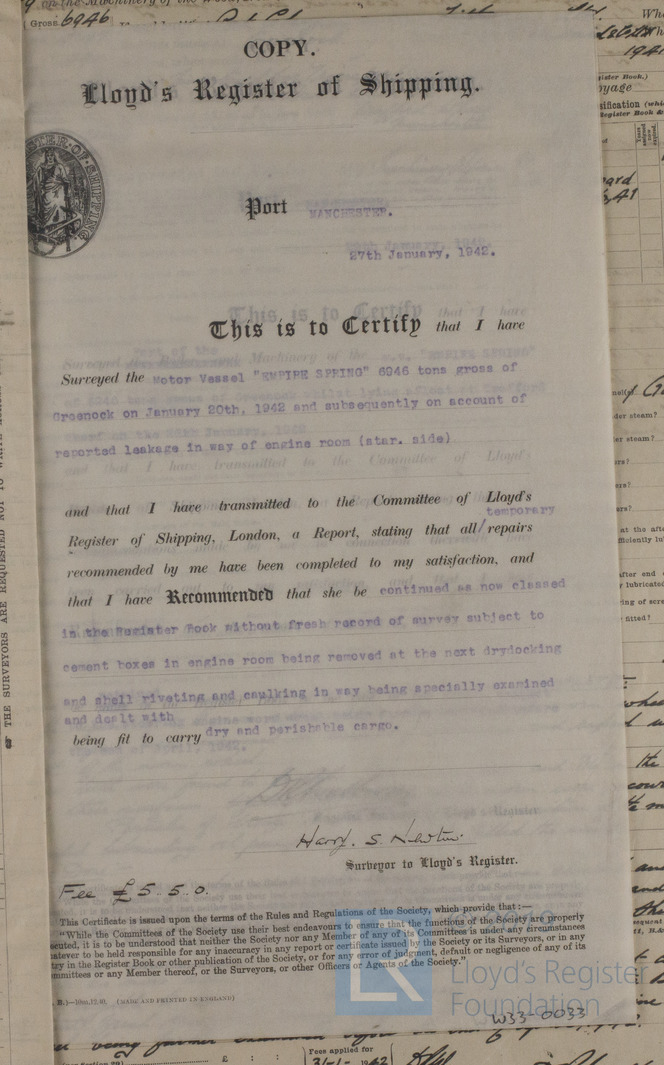 Gross 6946
COPY.
Lloyd's Register of Shipping.
Port MANCHESTER.
27th January, 1942.
This is to Certify that I have
Surveyed the Motor Vessel "EMPIRE SPRING" 6946 tons gross of
Greenock on January 20th, 1942 and subsequently on account of
reported leakage in way of engine room (star. side)
and that I have transmitted to the Committee of Lloyd's
temporary
Register of Shipping, London, a Report, stating that all/repairs
recommended by me have been completed to my satisfaction, and
that I have Recommended that she be continued as now classed
in the Register Book without fresh record of survey subject to
cement boxes in engine room being removed at the next drydocking
and shell riveting and caulking in way being specially examined
and dealt with
being fit to carry dry and perishable cargo.
Harry. S. Newton
Surveyor to Lloyd's Register.
Fee £5. 5. 0.
This Certificate is issued upon the terms of the Rules and Regulations of the Society, which provide that:—
"While the Committees of the Society use their best endeavours to ensure that the functions of the Society are properly
ecuted, it is to be understood that neither the Society nor any Member of any of its Committees is under any circumstances
atever to be held responsible for any inaccuracy in any report or certificate issued by the Society or its Surveyors, or in any
try in the Register Book or other publication of the Society, or for any error of judgment, default or negligence of any of its
mmittees or any Member thereof, or the Surveyors, or other Officers or Agents of the Society."
B.)—10m,12.40. (MADE AND PRINTED IN ENGLAND)
Lloyd's Register
Foundation
W33-0033
THE SURVEYORS ARE REQUESTED NOT TO WRITE
Fees applied for
31-1- 1942